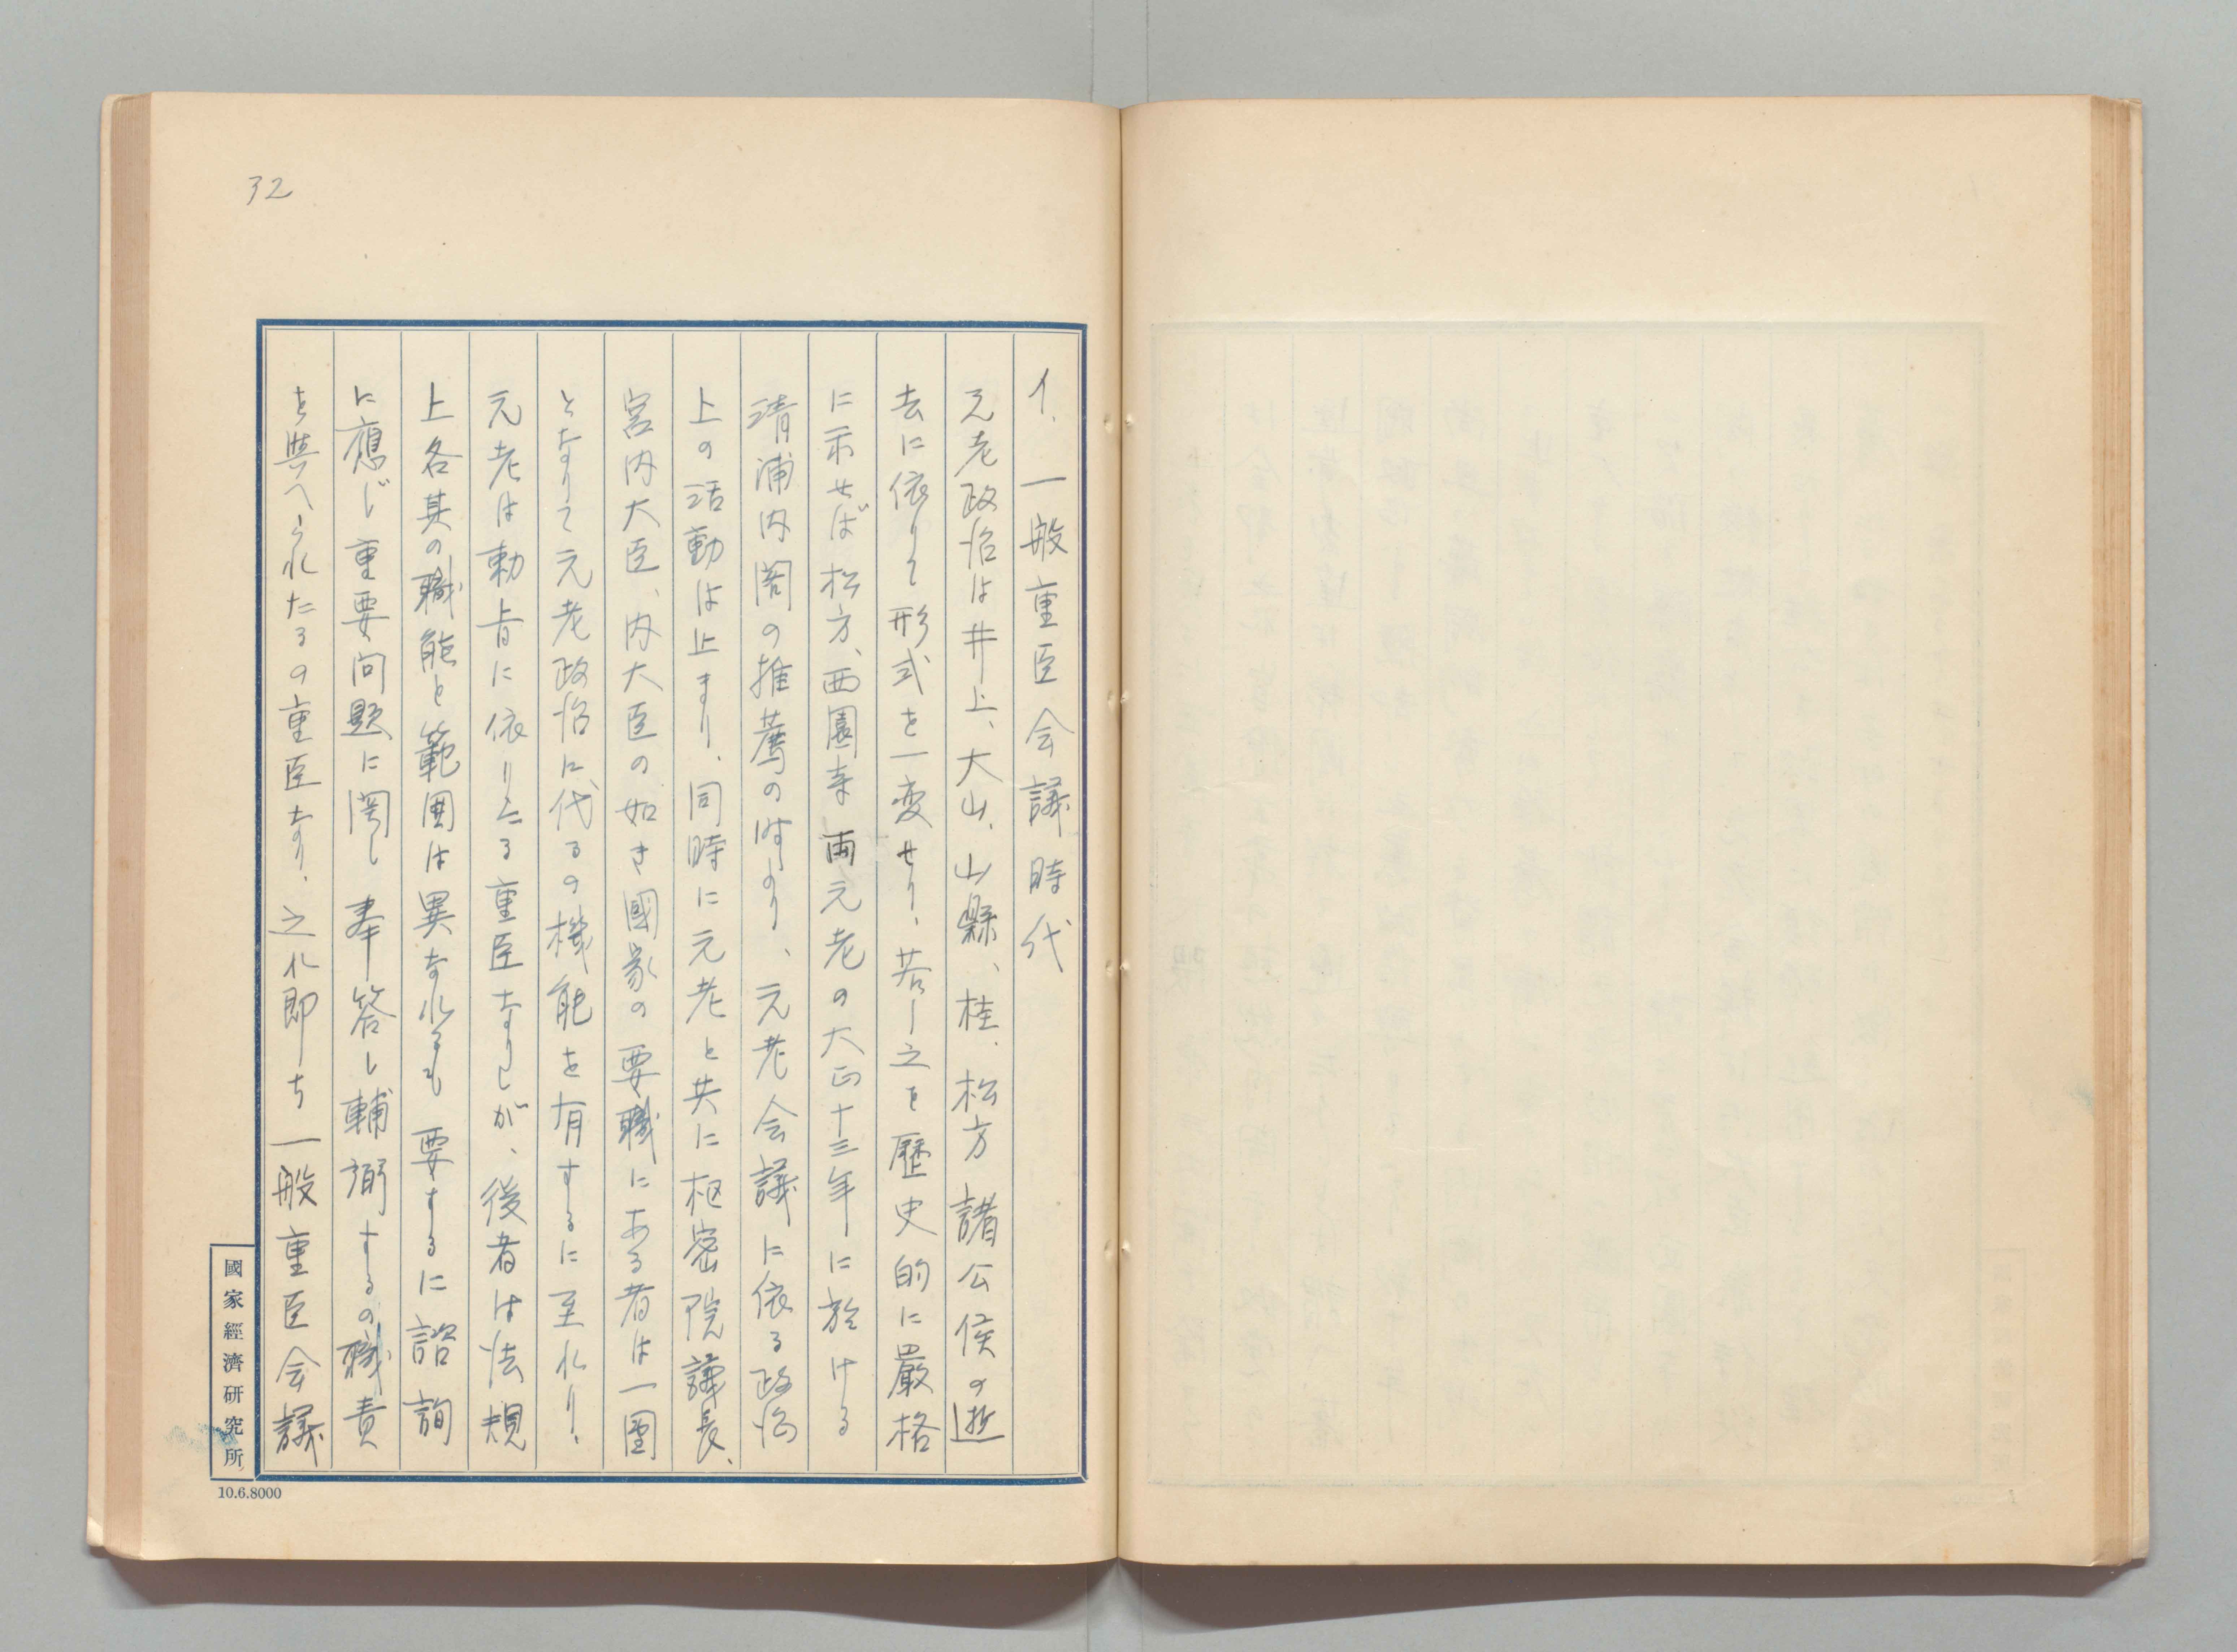 32
イ、一般重臣会議時代
元老政治は井上、大山、山縣、桂、松方諸公侯の逝
去に依りて形式を一変せり、若し之を歴史的に嚴格
に示せば松方、西園寺両元老の大正十三年に於ける
清浦内閣の推薦の時より、元老会議に依る政治
上の活動は止まり、同時に元老と共に枢密院議長、
宮内大臣、内大臣の如き國家の要職にある者は一團
となりて元老政治に代るの機能を有するに至れり、
元老は勅旨に依りたる重臣なりしが、後者は法規
上各其の職能と範囲は異なれるも要するに諮詢
に應じ重要問題に関し奉答し輔弼するの職責
を與へられたるの重臣なり、之れ即ち一般重臣会議
國家經濟研究所
10.6.8000